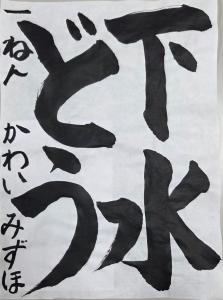 下水
どう
一ねん かわいみずほ